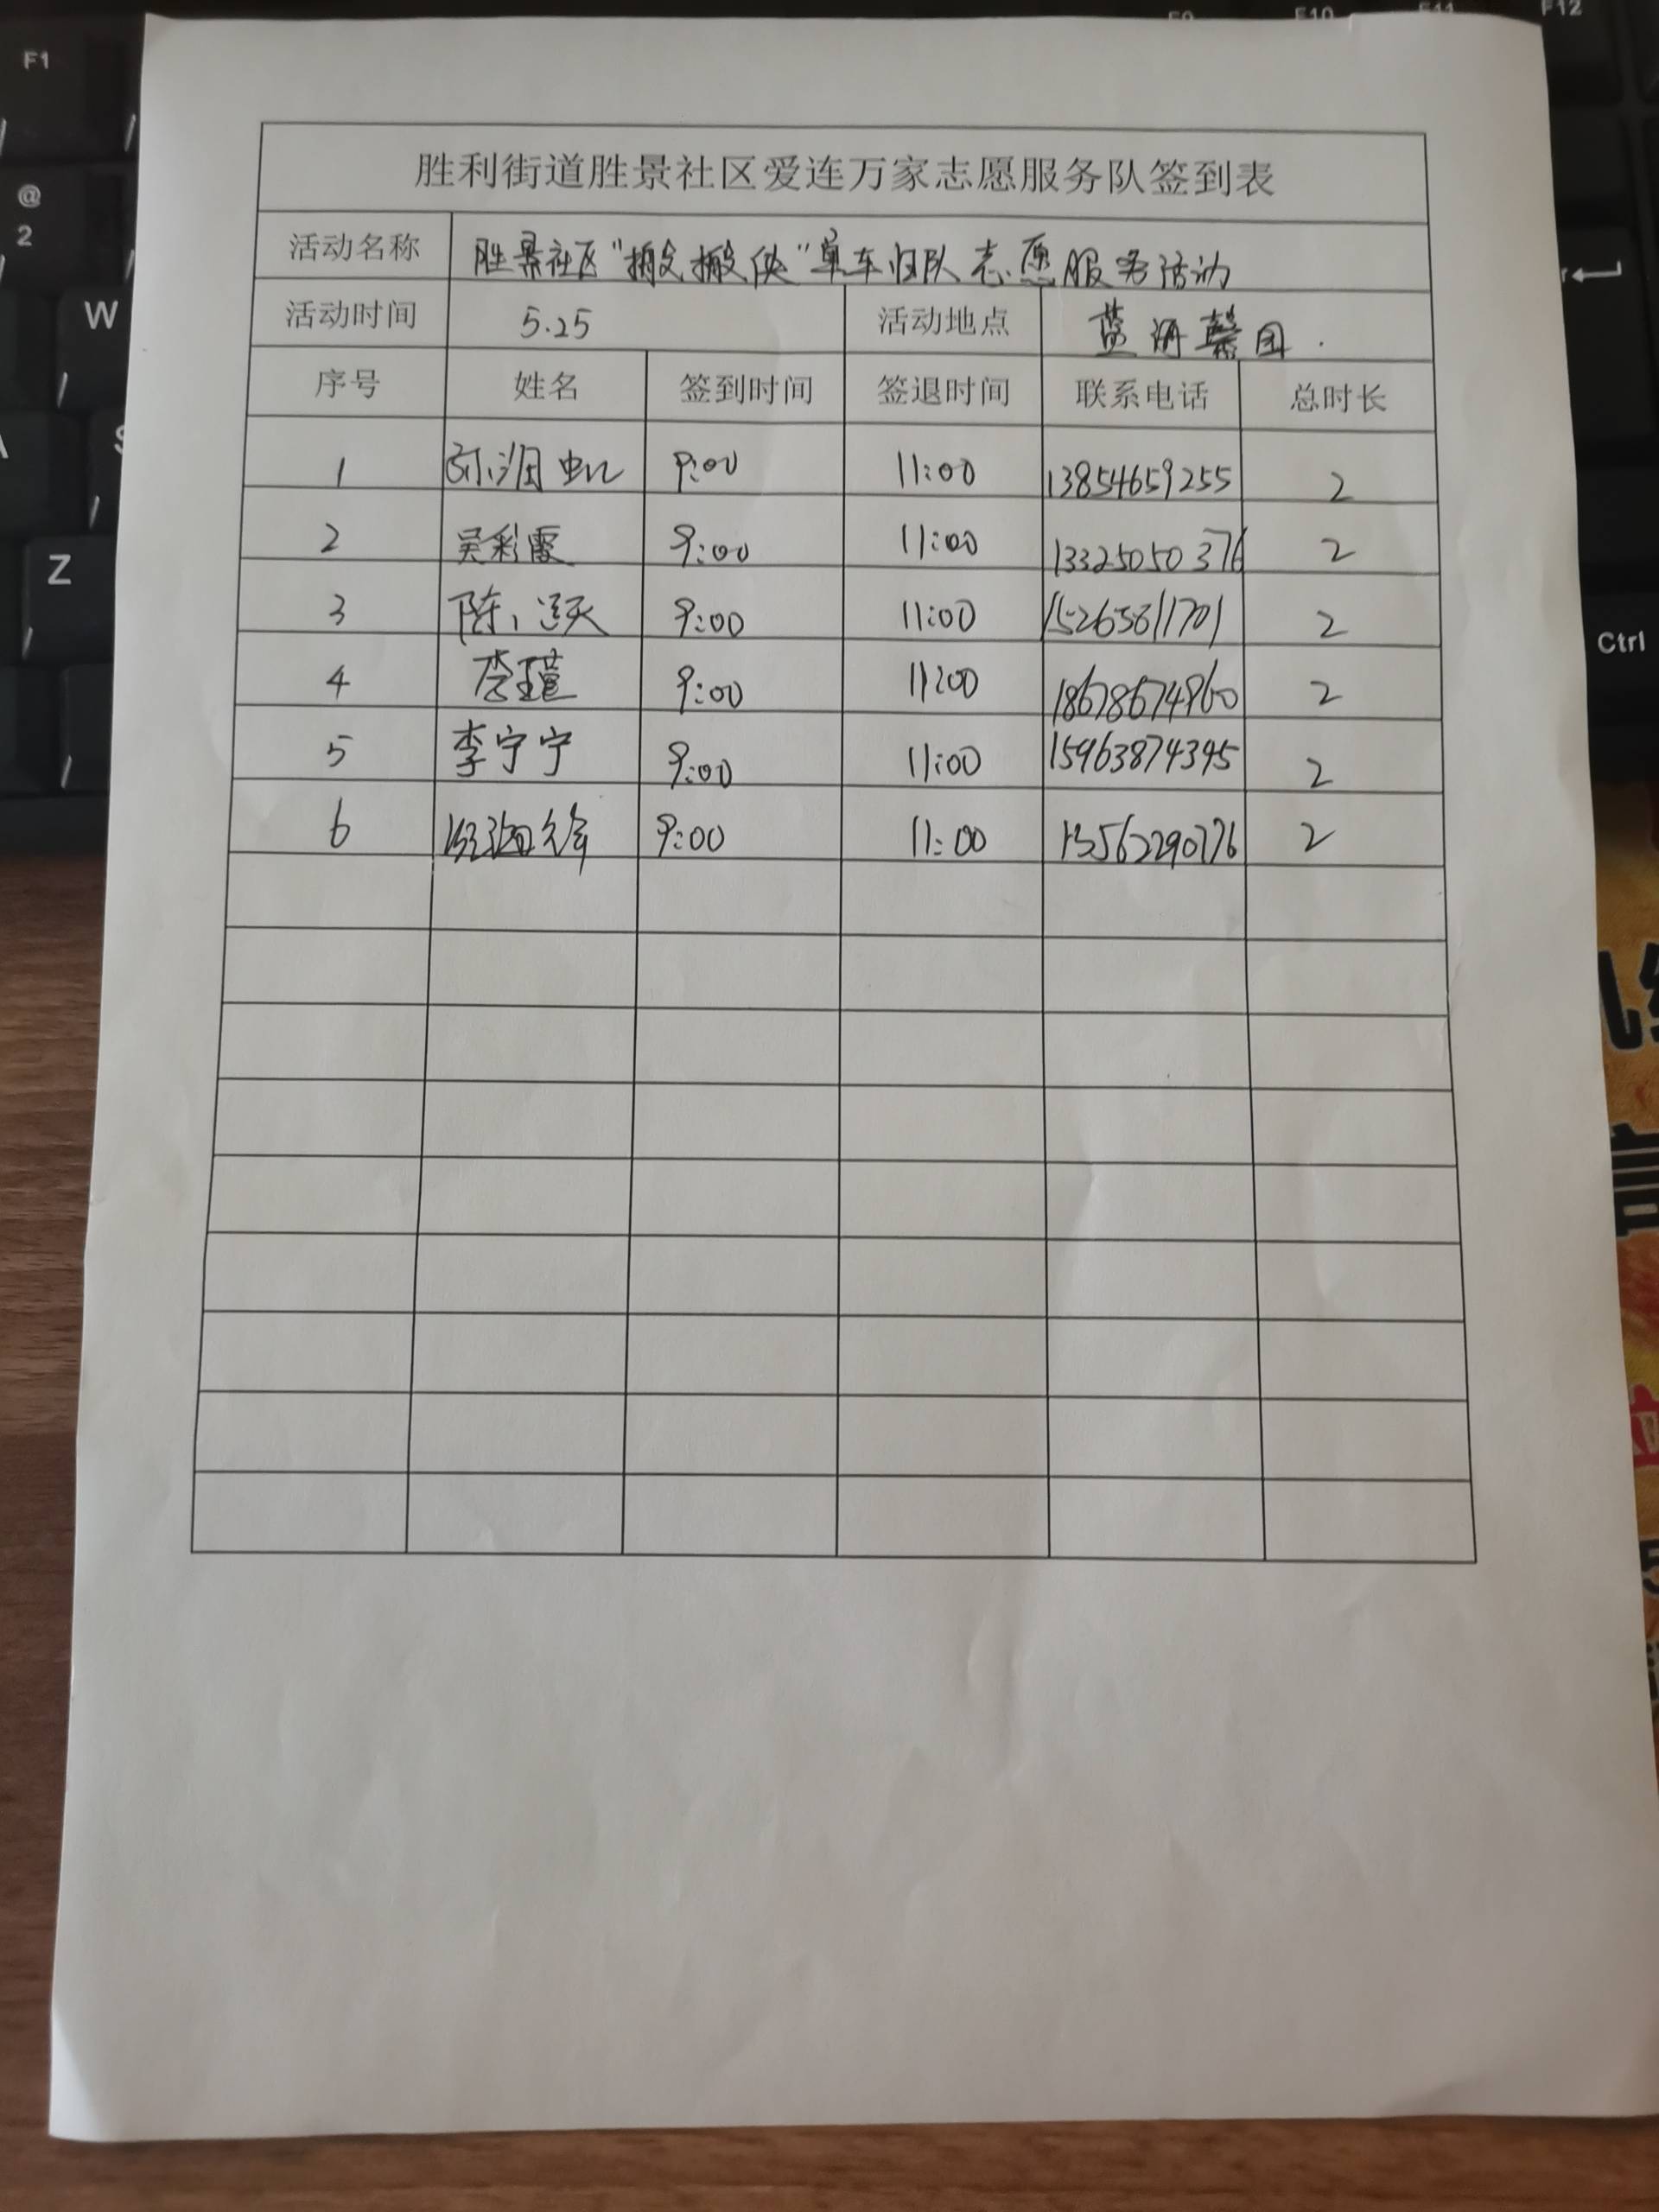 胜利街道胜景社区爱连万家志愿服务队签到表
活动名称 胜景社区"搬搬侠"单车归队志愿服务活动
活动时间 5.25 活动地点 蓝海馨园
序号 姓名 签到时间 签退时间 联系电话 总时长
1 9:00 11:00 13854659255 2
2 吴彩霞 9:00 11:00 13325050376 2
3 9:00 11:00 2
4 9:00 11:00 18678674960 2
5 李宁宁 9:00 11:00 15963874345 2
6 9:00 11:00 2
F1
F9
F10
F11
F12
@
2
W
Z
Ctrl